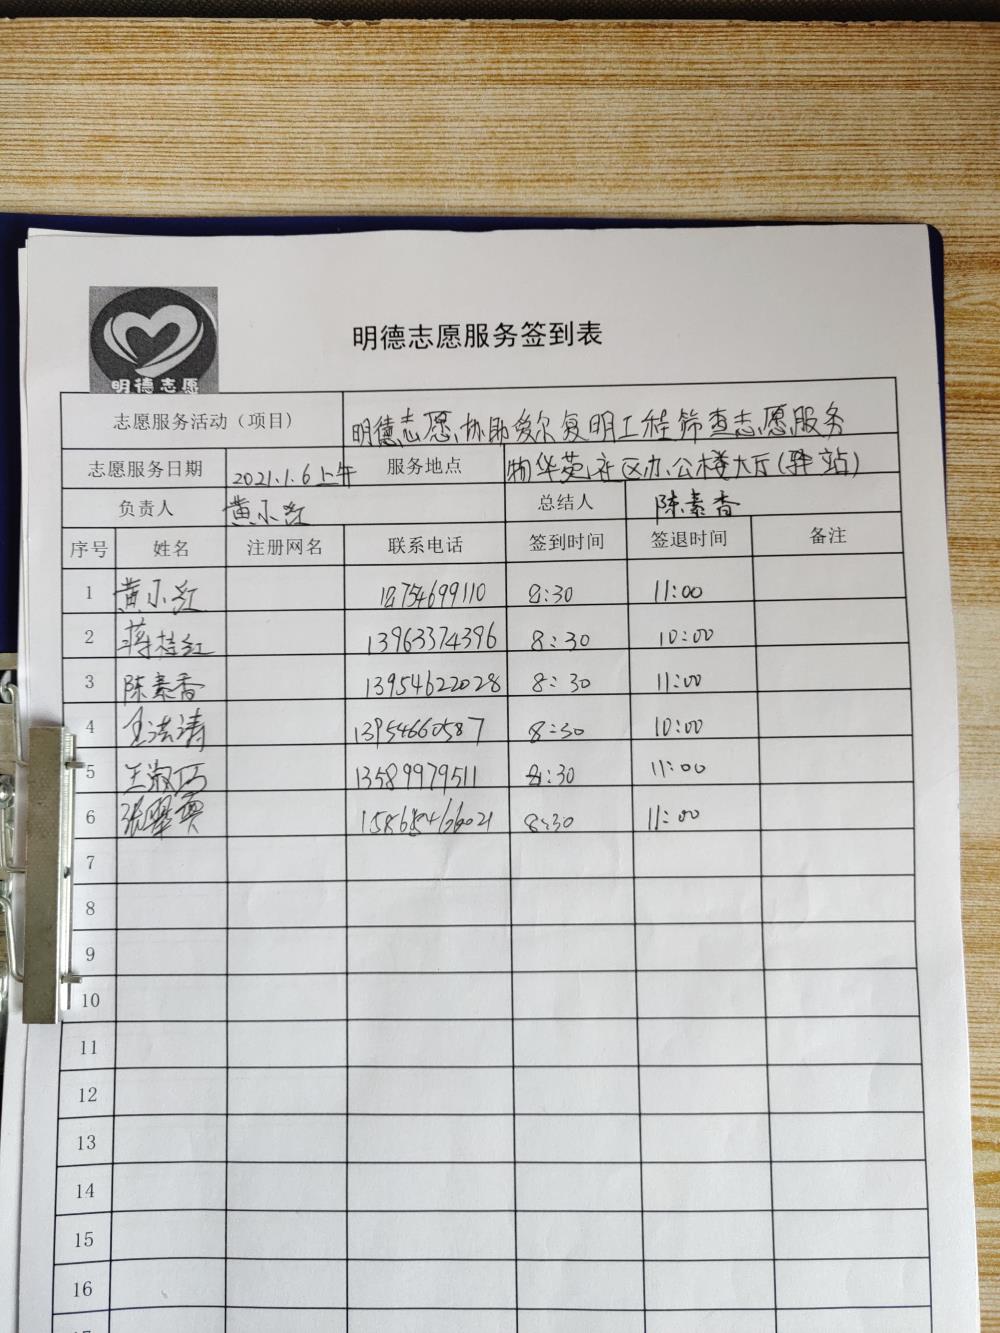 明德志愿
明德志愿服务签到表
志愿服务活动（项目） 明德志愿协助爱尔复明工程筛查志愿服务
志愿服务日期 2021.1.6上午 服务地点 物华苑社区办公楼大厅(驿站)
负责人 黄小红 总结人 陈素香
序号 姓名 注册网名 联系电话 签到时间 签退时间 备注
1 黄小红 8:30 11:00
2 蒋桂红 13963374396 8:30 10:00
3 陈素香 13954622028 8:30 11:00
4 13954660587 8:30 10:00
5 王淑巧 13589979511 8:30 11:00
6 8:30 11:00
7
8
9
10
11
12
13
14
15
16